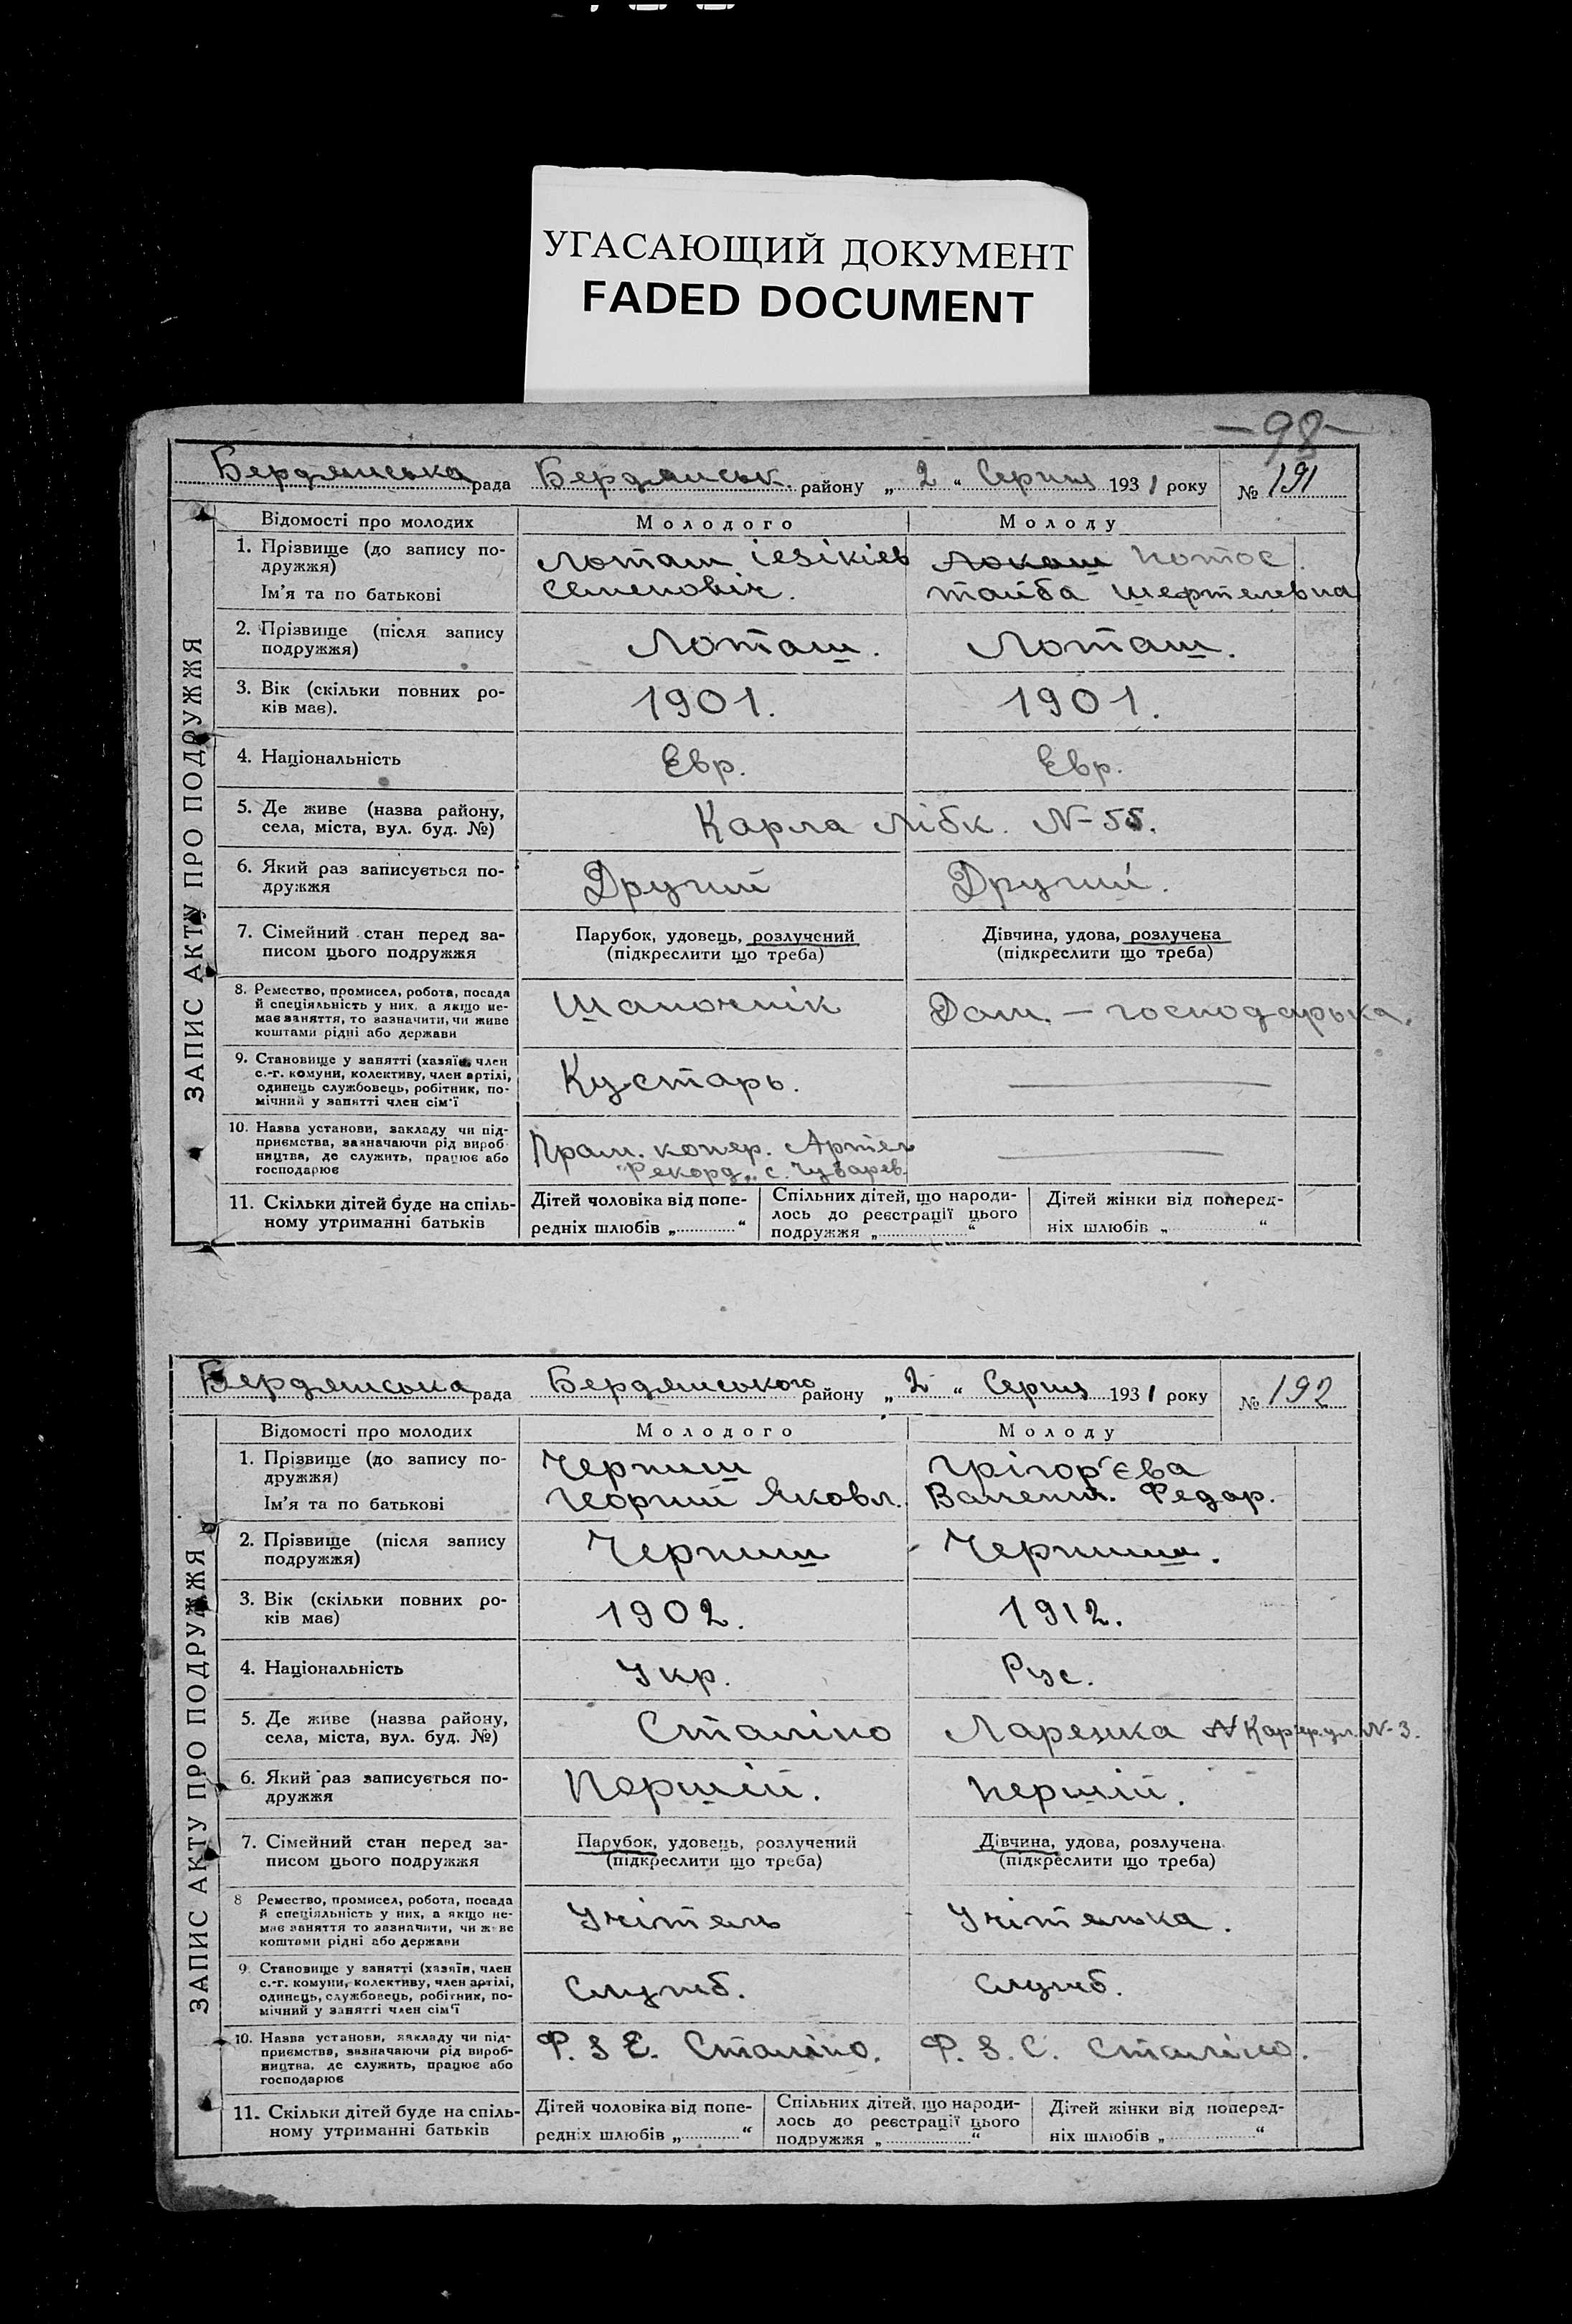 УГАСАЮЩИЙ ДОКУМЕНТ
FADED DOCUMENT
-98-
Бердянська рада Бердянськ. району „ 2 “ Серпня 1931 року № 191
ЗАПИС АКТУ ПРО ПОДРУЖЖЯ
Відомості про молодих Молодого Молоду
1. Прізвище (до запису по-
дружжя)
Ім'я та по батькові
Лоташ Іезікієв
Семеновіч.
Локаш Потос.
тайба Шефтелевна
2. Прізвище (після запису
подружжя)
Лоташ. Лоташ.
3. Вік (скільки повних ро-
ків має).
1901. 1901.
4. Національність Евр. Евр.
5. Де живе (назва району,
села, міста, вул. буд. №)
Карла Лібк. N-55.
6. Який раз записується по-
дружжя
Другий Другий.
7. Сімейний стан перед за-
писом цього подружжя
Парубок, удовець, розлучений
(підкреслити що треба)
Дівчина, удова, розлучена
(підкреслити що треба)
8. Ремество, промисел, робота, посада
й спеціяльність у них, а якщо не-
має заняття, то зазначити, чи живе
коштами рідні або держави
Шапочнік Дом. – господарька.
9. Становище у занятті (хазяїн, член
с.-г. комуни, колективу, член артілі,
одинець службовець, робітник, по-
мічний у занятті член сім'ї
Кустарь.
10. Назва установи, закладу чи під-
приємства, зазначаючи рід вироб-
ництва, де служить, працює або
господарює
Пром. копер. Артел
"Рекорд„ с.
11. Скільки дітей буде на спіль-
ному утриманні батьків
Дітей чоловіка від попе-
редніх шлюбів „ “
Спільних дітей, що народи-
лось до реєстрації цього
подружжя „ “
Дітей жінки від поперед-
ніх шлюбів „ “
Бердянська рада Бердянського району „ 2 “ Серпня 1931 року № 192
ЗАПИС АКТУ ПРО ПОДРУЖЖЯ
Відомості про молодих Молодого Молоду
1. Прізвище (до запису по-
дружжя)
Ім'я та по батькові
Черниш
Георгий Яковл.
Грігор'єва
Валент. Федор.
2. Прізвище (після запису
подружжя)
Черниш Черниш.
3. Вік (скільки повних ро-
ків має)
1902. 1912.
4. Національність Укр. Рус.
5. Де живе (назва району,
села, міста, вул. буд. №)
Сталіно N-3.
6. Який раз записується по-
дружжя
Першій. першій.
7. Сімейний стан перед за-
писом цього подружжя
Парубок, удовець, розлучений
(підкреслити що треба)
Дівчина, удова, розлучена
(підкреслити що треба)
8 Ремество, промисел, робота, посада
й спеціяльність у них, а якщо не-
має заняття то зазначити, чи живе
коштами рідні або держави
Учітель Учітелька.
9 Становище у занятті (хазяїн, член
с.-г. комуни, колективу, член артілі,
одинець, службовець, робітник, по-
мічний у занятті член сім'ї
Служб. Служб.
10. Назва установи, закладу чи під-
приємства, зазначаючи рід вироб-
ництва, де служить, працює або
господарює
Сталіно. Сталіно.
11. Скільки дітей буде на спіль-
ному утриманні батьків
Дітей чоловіка від попе-
редніх шлюбів „ “
Спільних дітей, що народи-
лось до реєстрації цього
подружжя „ “
Дітей жінки від поперед-
ніх шлюбів „ “